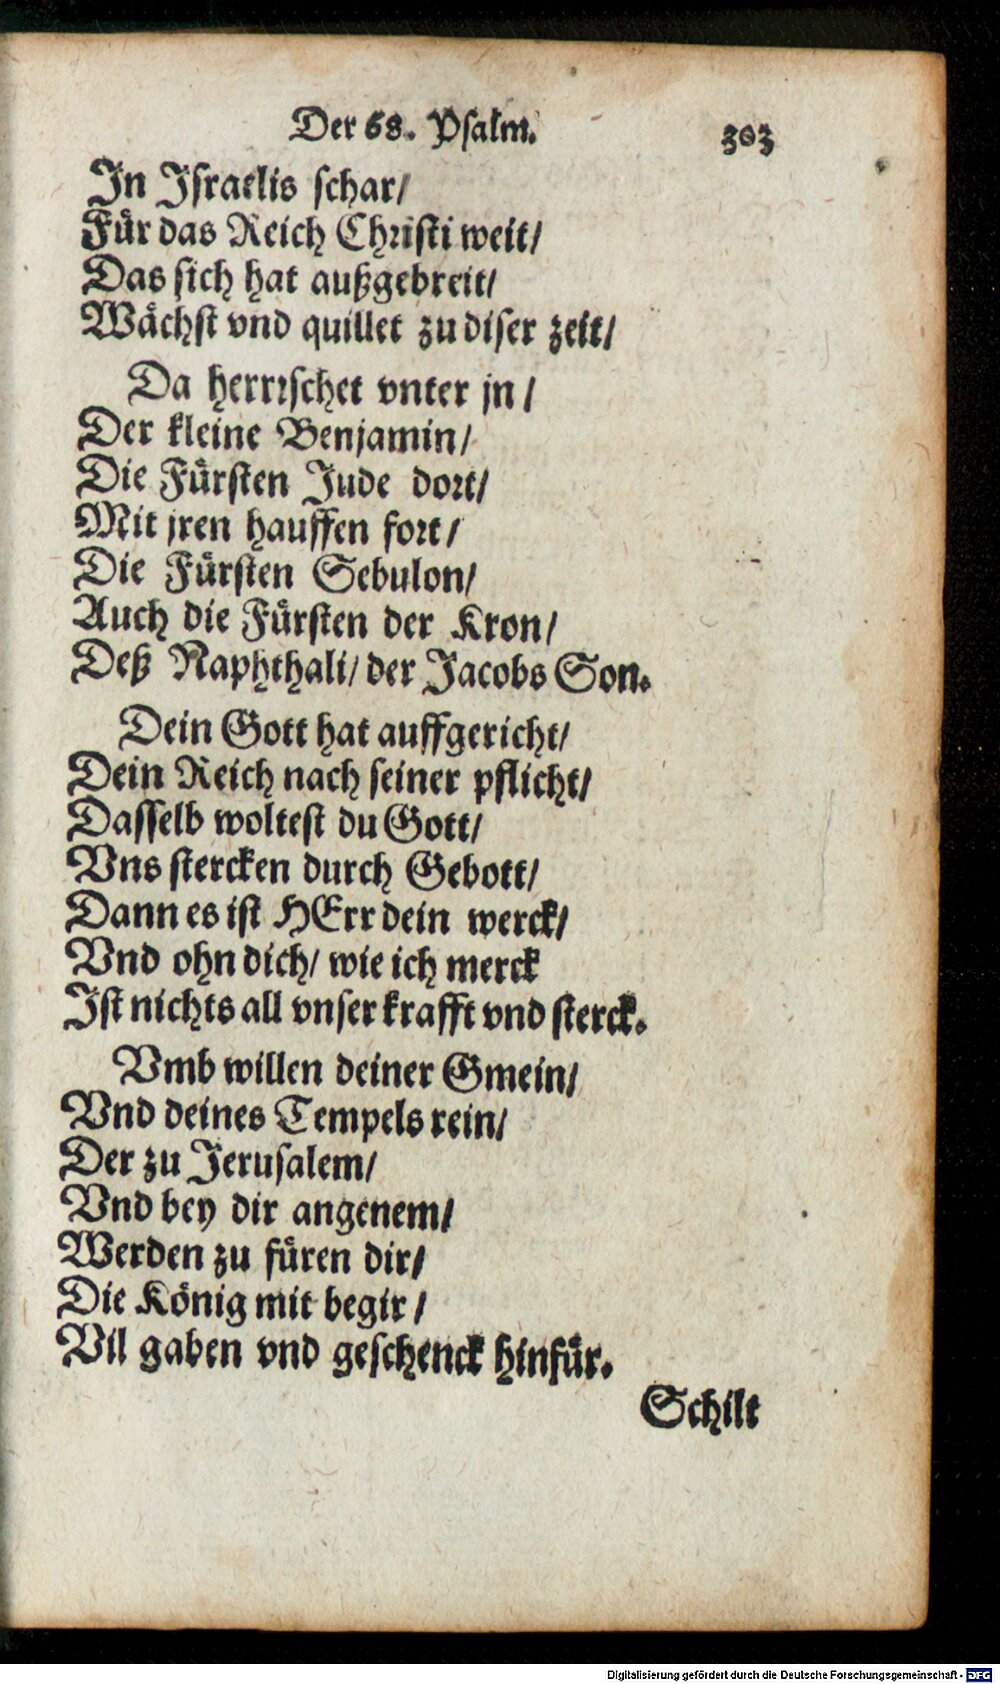 Der 68. Psalm. 303
In Israelis schar/
Für das Reich Christi weit/
Das sich hat außgebreit/
Wächst vnd quillet zu diser zeit/
Da herrrschet vnter jn/
Der kleine Benjamin/
Die Fürsten Jude dort/
Mit jren hauffen fort/
Die Fürsten Sebulon/
Auch die Fürsten der Kron/
Deß Naphthali/ der Jacobs Son.
Dein Gott hat auffgericht/
Dein Reich nach seiner pflicht/
Dasselb woltest du Gott/
Vns stercken durch Gebott/
Dann es ist HErr dein werck/
Vnd ohn dich/ wie ich merck
Ist nichts all vnser krafft vnd sterck.
Vmb willen deiner Gmein/
Vnd deines Tempels rein/
Der zu Jerusalem/
Vnd bey dir angenem/
Werden zu füren dir/
Die König mit begir/
Vil gaben vnd geschenck hinfür.
Schilt
Digitalisierung gefördert durch die Deutsche Forschungsgemeinschaft - DFG